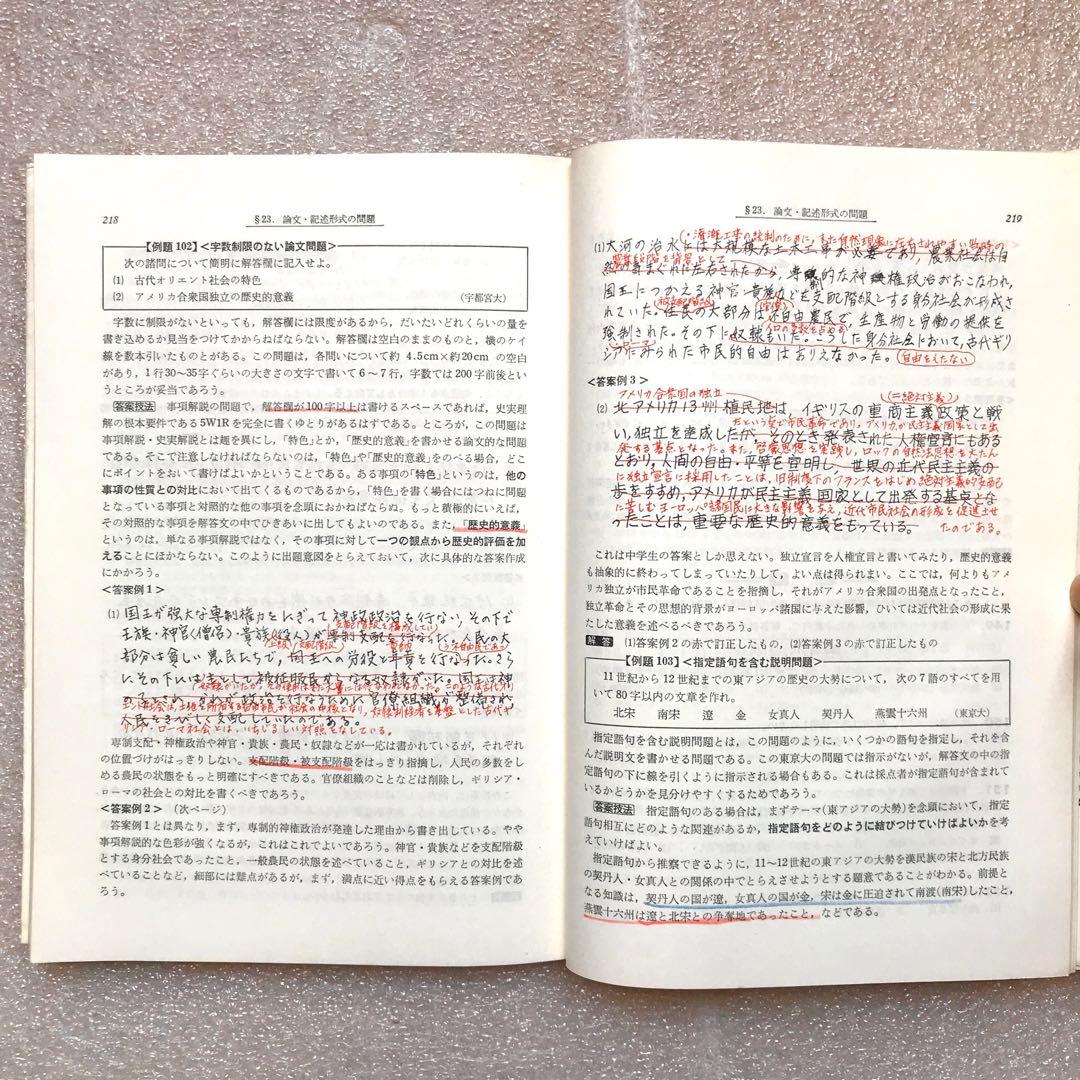 218
§23. 論文・記述形式の問題
【例題 102】<字数制限のない論文問題>
次の諸問について簡明に解答欄に記入せよ。
(1) 古代オリエント社会の特色
(2) アメリカ合衆国独立の歴史的意義 (宇都宮大)
字数に制限がないといっても，解答欄には限度があるから，だいたいどれくらいの量を
書き込めるか見当をつけてかからねばならない。解答欄は空白のままのものと，横のケイ
線を数本引いたものとがある。この問題は，各問いについて約 4.5cm×約20cm の空白
があり，1行30〜35字ぐらいの大きさの文字で書いて6〜7行，字数では200字前後とい
うところが妥当であろう。
答案技法 事項解説の問題で，解答欄が100字以上は書けるスペースであれば，史実理
解の根本要件である5W1Rを完全に書くゆとりがあるはずである。ところが，この問題は
事項解説・史実解説とは趣を異にし，「特色」とか，「歴史的意義」を書かせる論文的な問題
である。そこで注意しなければならないのは，「特色」や「歴史的意義」をのべる場合，どこ
にポイントをおいて書けばよいかということである。ある事項の「特色」というのは，他の
事項の性質との対比において出てくるものであるから，「特色」を書く場合にはつねに問題
となっている事項と対照的な他の事項を念頭におかねばならぬ。もっと積極的にいえば，
その対照的な事項を解答文の中でひきあいに出してもよいのである。また，「歴史的意義」
というのは，単なる事項解説ではなく，その事項に対して一つの観点から歴史的評価を加
えることにほかならない。このように出題意図をとらえておいて，次に具体的な答案作成
にかかろう。
<答案例1>
(1) 国王が強大な専制権力をにぎって神政政治を行ない，その下で
王族・神官(僧侶)・貴族(役人)が専制支配を行なった。人民の大
部分は貧しい農民たちで，国王への労役と年貢を行なった。さら
にその下には主として被征服民からなる奴隷がいた。国王は神
人民をきびしく支配していたのである。
専制支配・神権政治や神官・貴族・農民・奴隷などが一応は書かれているが，それぞれ
の位置づけがはっきりしない。支配階級・被支配階級をはっきり指摘し，人民の多数をし
める農民の状態をもっと明確にすべきである。官僚組織のことなどは削除し，ギリシア・
ローマの社会との対比を書くべきであろう。
<答案例2> (次ページ)
答案例1とは異なり，まず，専制的神権政治が発達した理由から書き出している。やや
事項解説的な色彩が強くなるが，これはこれでよいであろう。神官・貴族などを支配階級
とする身分社会であったこと，一般農民の状態を述べていること，ギリシアとの対比を述
べていることなど，細部には難点があるが，まず，満点に近い得点をもらえる答案例であ
ろう。
§23. 論文・記述形式の問題
219
(1)大河の治水には大規模な土木工事が必要であり，農業社会は自
然の気まぐれに左右されたから，専制的な神権政治がおこなわれ，
国王につかえる神官・貴族などを支配階級とする身分社会が形成さ
れていた。住民の大部分は不自由農民で，生産物と労働の提供を
強制された。その下に奴隷もいた。こうした身分社会において，古代ギリ
シアにみられた市民的自由はありえなかった。
自由をえたない
<答案例3>
アメリカ合衆国の独立
(2) 北アメリカ13州植民地は，イギリスの重商主義政策と戦
い，独立を達成したが，そのとき発表された人権宣言にもある
とおり，人間の自由・平等を容明し，世界の近代民主主義の
歩をすすめ，アメリカが民主主義国家として出発する基点とな
ったことは，重要な歴史的意義をもっている。
たのである。
これは中学生の答案としか思えない。独立宣言を人権宣言と書いてみたり，歴史的意義
も抽象的に終わってしまっていたりして，よい点は得られまい。ここでは，何よりもアメ
リカ独立が市民革命であることを指摘し，それがアメリカ合衆国の出発点となったこと，
独立革命とその思想的背景がヨーロッパ諸国に与えた影響，ひいては近代社会の形成に果
たした意義を述べるべきであろう。
解答 (1)答案例2の赤で訂正したもの，(2)答案例3の赤で訂正したもの
【例題 103】<指定語句を含む説明問題>
11世紀から12世紀までの東アジアの歴史の大勢について，次の7語のすべてを用
いて80字以内の文章を作れ。
北宋 南宋 遼 金 女真人 契丹人 燕雲十六州 (東京大)
指定語句を含む説明問題とは，この問題のように，いくつかの語句を指定し，それを含
んだ説明文を書かせる問題である。この東京大の問題では指示がないが，解答文の中の指
定語句の下に線を引くように指示される場合もある。これは採点者が指定語句が含まれて
いるかどうかを見分けやすくするためであろう。
答案技法 指定語句のある場合は，まずテーマ(東アジアの大勢)を念頭において，指定
語句相互にどのような関連があるか，指定語句をどのように結びつけていけばよいかを考
えていけばよい。
指定語句から推察できるように，11〜12世紀の東アジアの大勢を漢民族の宋と北方民族
の契丹人・女真人との関係の中でとらえさせようとする題意であることがわかる。前提と
なる知識は，契丹人の国が遼，女真人の国が金，宋は金に圧迫されて南渡(南宋)したこと，
燕雲十六州は遼と北宋との争奪地であったこと，などである。